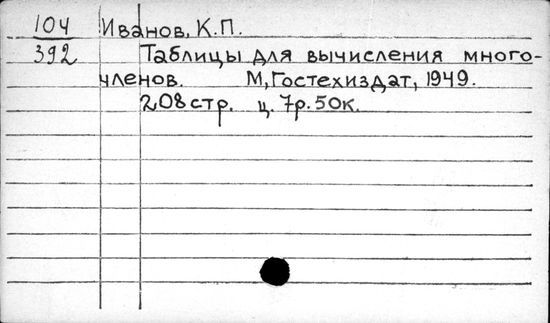 104 Иванов, К.П.
392 Таблицы для вычисления много-
членов. М, Гостехиздат, 1949.
208 стр. ц. 7р. 50к.